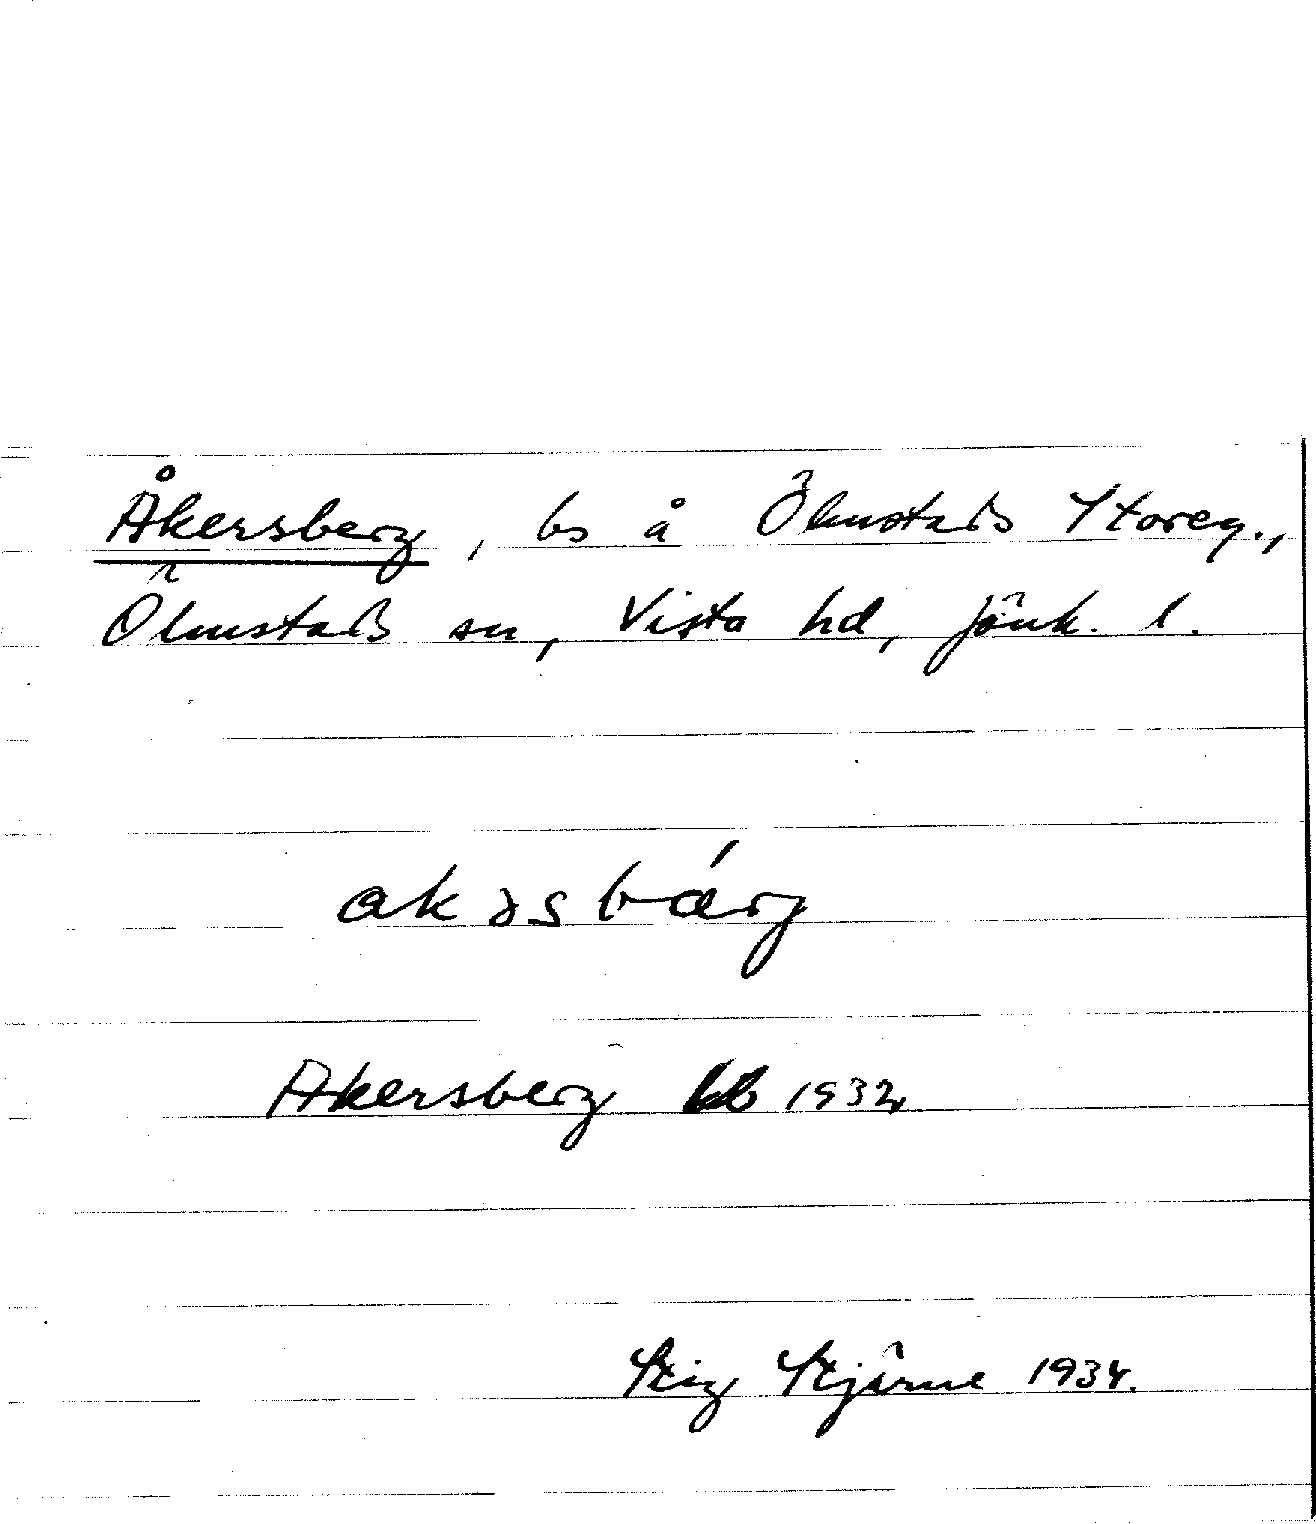 Åkersberg, bs å Ölmstads Storeg.,
Ölmstads sn, Vista hd, Jönk. l.
akəsbárj
Åkersberg kb 1932
Stig Stjärne 1934.